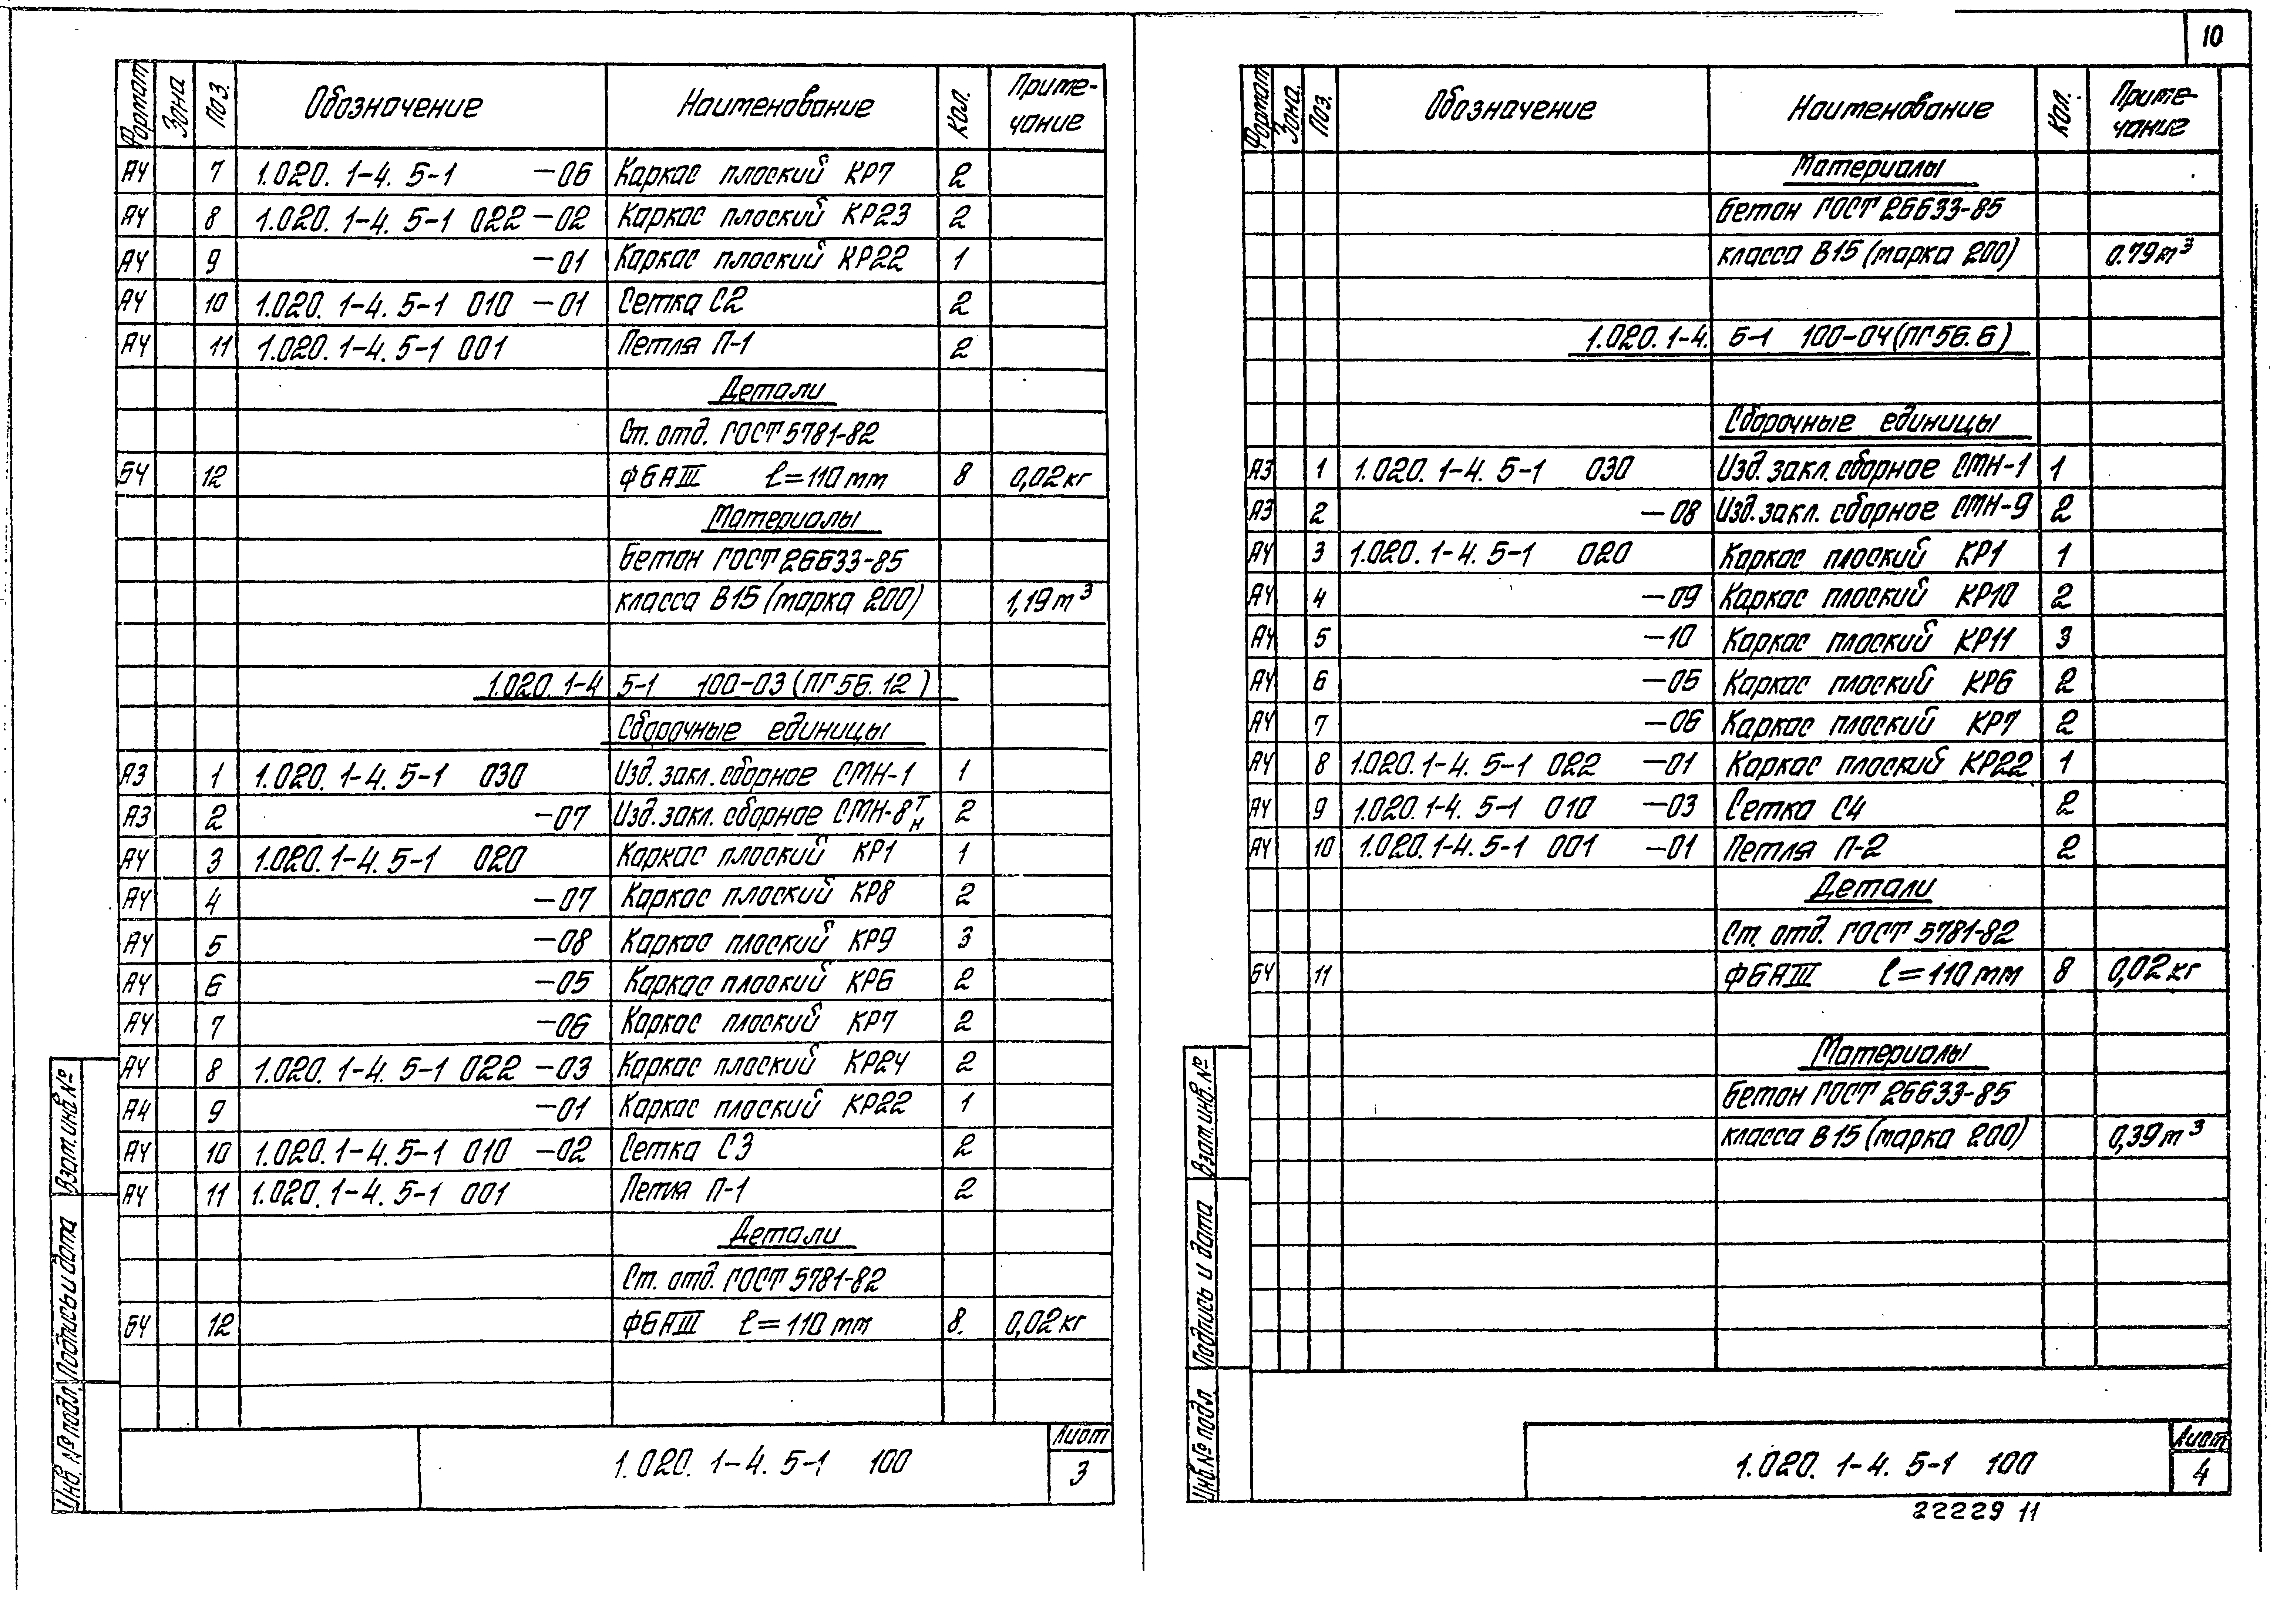 10
Формат Зона Поз. Обозначение Наименование Кол. Приме-
чание
А4 7 1.020.1-4.5-1 -06 Каркас плоский КР7 2
А4 8 1.020.1-4.5-1 022-02 Каркас плоский КР23 2
А4 9 -01 Каркас плоский КР22 1
А4 10 1.020.1-4.5-1 010 -01 Сетка С2 2
А4 11 1.020.1-4.5-1 001 Петля П-1 2
Детали
Ст. отд. ГОСТ 5781-82
БЧ 12 Ф6АIII ℓ=110 mm 8 0,02 кг
Материалы
Бетон ГОСТ 26633-85
класса В15 (марка 200) 1,19 m³
1.020.1-4 5-1 100-03 (ПГ56.12)
Сборочные единицы
А3 1 1.020.1-4.5-1 030 Изд. закл. сборное СМН-1 1
А3 2 -07 Изд. закл. сборное СМН-8 т н 2
А4 3 1.020.1-4.5-1 020 Каркас плоский КР1 1
А4 4 -07 Каркас плоский КР8 2
А4 5 -08 Каркас плоский КР9 3
А4 6 -05 Каркас плоский КР6 2
А4 7 -06 Каркас плоский КР7 2
А4 8 1.020.1-4.5-1 022 -03 Каркас плоский КР24 2
А4 9 -01 Каркас плоский КР22 1
А4 10 1.020.1-4.5-1 010 -02 Сетка С3 2
А4 11 1.020.1-4.5-1 001 Петля П-1 2
Детали
Ст. отд. ГОСТ 5781-82
БЧ 12 Ф6АIII ℓ=110 mm 8. 0,02 кг
Инв. № подл. Подпись и дата Взам. инв. №
1.020.1-4.5-1 100
Лист
3
Формат Зона. Поз. Обозначение Наименование Кол. Приме-
чание
Материалы
Бетон ГОСТ 26633-85
класса В15 (марка 200) 0.79 m³
1.020.1-4. 5-1 100-04 (ПГ56.6)
Сборочные единицы
А3 1 1.020.1-4.5-1 030 Изд. закл. сборное СМН-1 1
А3 2 -08 Изд. закл. сборное СМН-9 2
А4 3 1.020.1-4.5-1 020 Каркас плоский КР1 1
А4 4 -09 Каркас плоский КР10 2
А4 5 -10 Каркас плоский КР11 3
А4 6 -05 Каркас плоский КР6 2
А4 7 -06 Каркас плоский КР7 2
А4 8 1.020.1-4.5-1 022 -01 Каркас плоский КР22 1
А4 9 1.020.1-4.5-1 010 -03 Сетка С4 2
А4 10 1.020.1-4.5-1 001 -01 Петля П-2 2
Детали
Ст. отд. ГОСТ 5781-82
БЧ 11 Ф6АIII ℓ=110 mm 8 0,02 кг
Материалы
Бетон ГОСТ 26633-85
класса В15 (марка 200) 0,39 m³
Инв. № подл Подпись и дата Взам. инв. №
1.020.1-4.5-1 100
Лист
4
22229 11